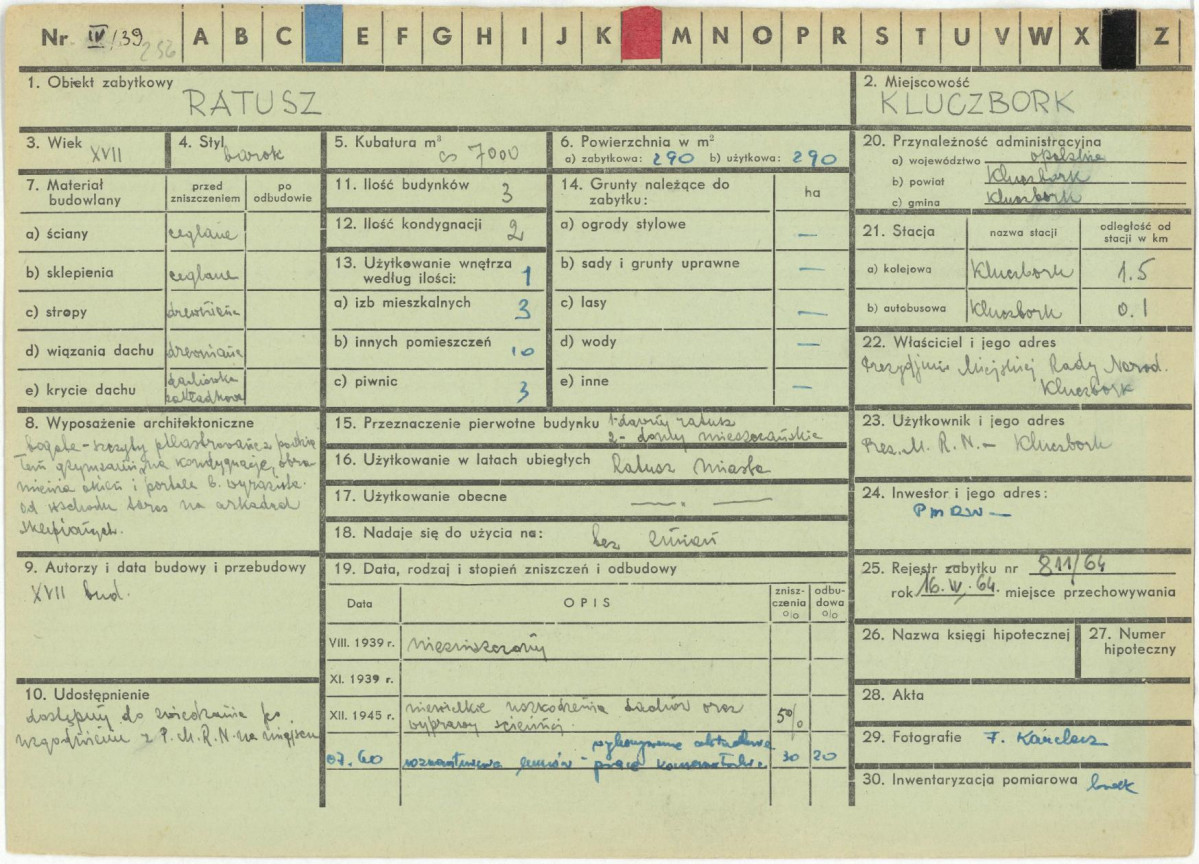 Nr. IV/39 256 A B C E F G H I J K M N O P R S T U V W X Z
1. Obiekt zabytkowy
RATUSZ
2. Miejscowość
KLUCZBORK
3. Wiek
XVII
4. Styl
barok
5. Kubatura m³
ca 7000
6. Powierzchnia w m²
a) zabytkowa: 290 b) użytkowa: 290
7. Materiał budowlany
przed zniszczeniem
po odbudowie
a) ściany ceglane
b) sklepienia ceglane
c) stropy drewniane
d) wiązania dachu drewniane
e) krycie dachu dachówka
zakładkowa
8. Wyposażenie architektoniczne
bogate - szczyty pilastrowane z
kondygnacje,
okien i portale b.
od wschodu taras na arkadach
sklepionych.
9. Autorzy i data budowy i przebudowy
XVII bud.
10. Udostępnienie
dostępny do zwiedzania po
uzgodnieniu z P.M.R.N. na miejscu
11. Ilość budynków 3
12. Ilość kondygnacji 2
13. Użytkowanie wnętrza
według ilości: 1
a) izb mieszkalnych 3
b) innych pomieszczeń 10
c) piwnic 3
14. Grunty należące do
zabytku:
ha
a) ogrody stylowe —
b) sady i grunty uprawne —
c) lasy —
d) wody —
e) inne —
15. Przeznaczenie pierwotne budynku 1- dawny ratusz
2- domy mieszczańskie
16. Użytkowanie w latach ubiegłych Ratusz miasta
17. Użytkowanie obecne —„—
18. Nadaje się do użycia na: bez zmian
19. Data, rodzaj i stopień zniszczeń i odbudowy
Data
OPIS
znisz-
czenia
%
odbu-
dowa
%
VIII. 1939 r. niezniszczony
XI. 1939 r.
XII. 1945 r. niewielkie uszkodzenia dachów oraz
wyprawy ściennej. 5%
07.60 murów - prace konserwatorskie 30 20
20. Przynależność administracyjna
a) województwo opolskie
b) powiat Kluczbork
c) gmina Kluczbork
21. Stacja
nazwa stacji
odległość od
stacji w km
a) kolejowa Kluczbork 1.5
b) autobusowa Kluczbork 0.1
22. Właściciel i jego adres
Prezydjum Miejskiej Rady Narod.
Kluczbork
23. Użytkownik i jego adres
Prez. M. R. N. - Kluczbork
24. Inwestor i jego adres:
PMRN —
25. Rejestr zabytku nr 811/64
rok 16.IV.64. miejsce przechowywania
26. Nazwa księgi hipotecznej
27. Numer
hipoteczny
28. Akta
29. Fotografie F. Karclesz
30. Inwentaryzacja pomiarowa brak